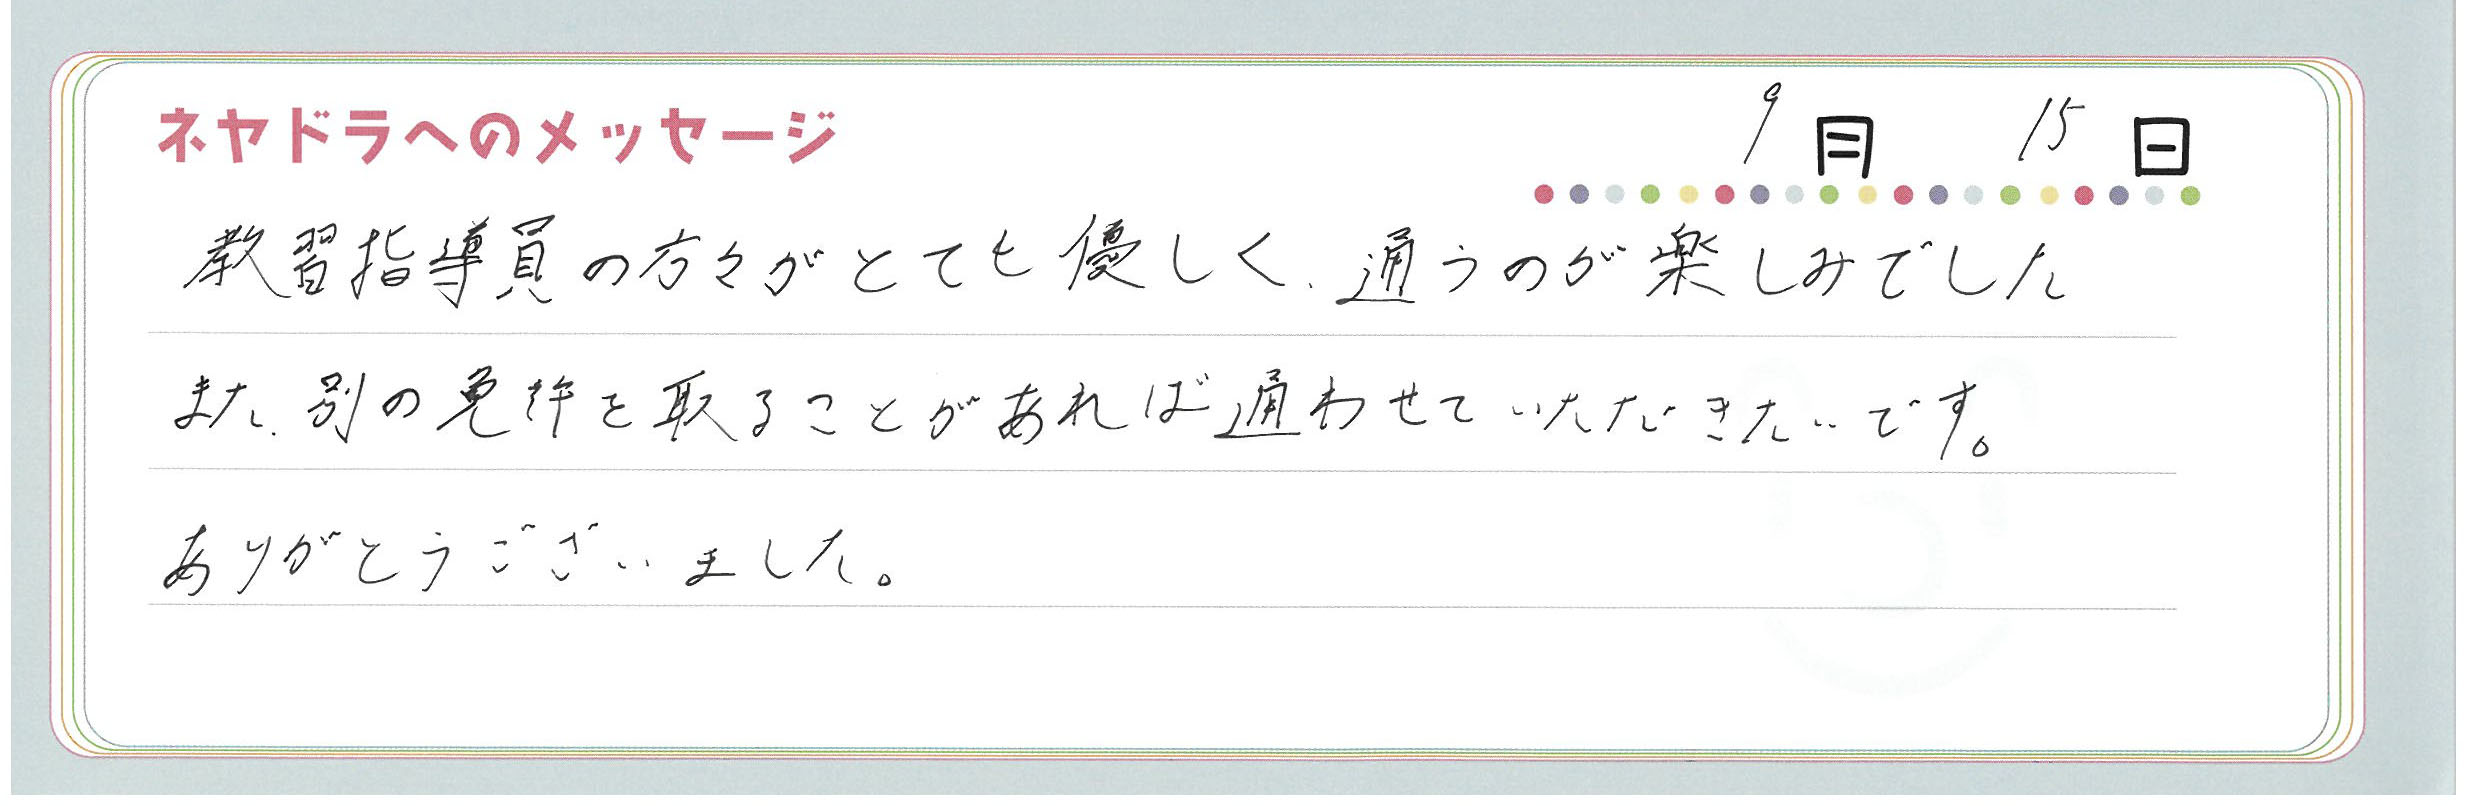 ネヤドラへのメッセージ 9月 15日
教習指導員の方々がとても優しく、通うのが楽しみでした
また、別の免許を取ることがあれば通わせていただきたいです。
ありがとうございました。